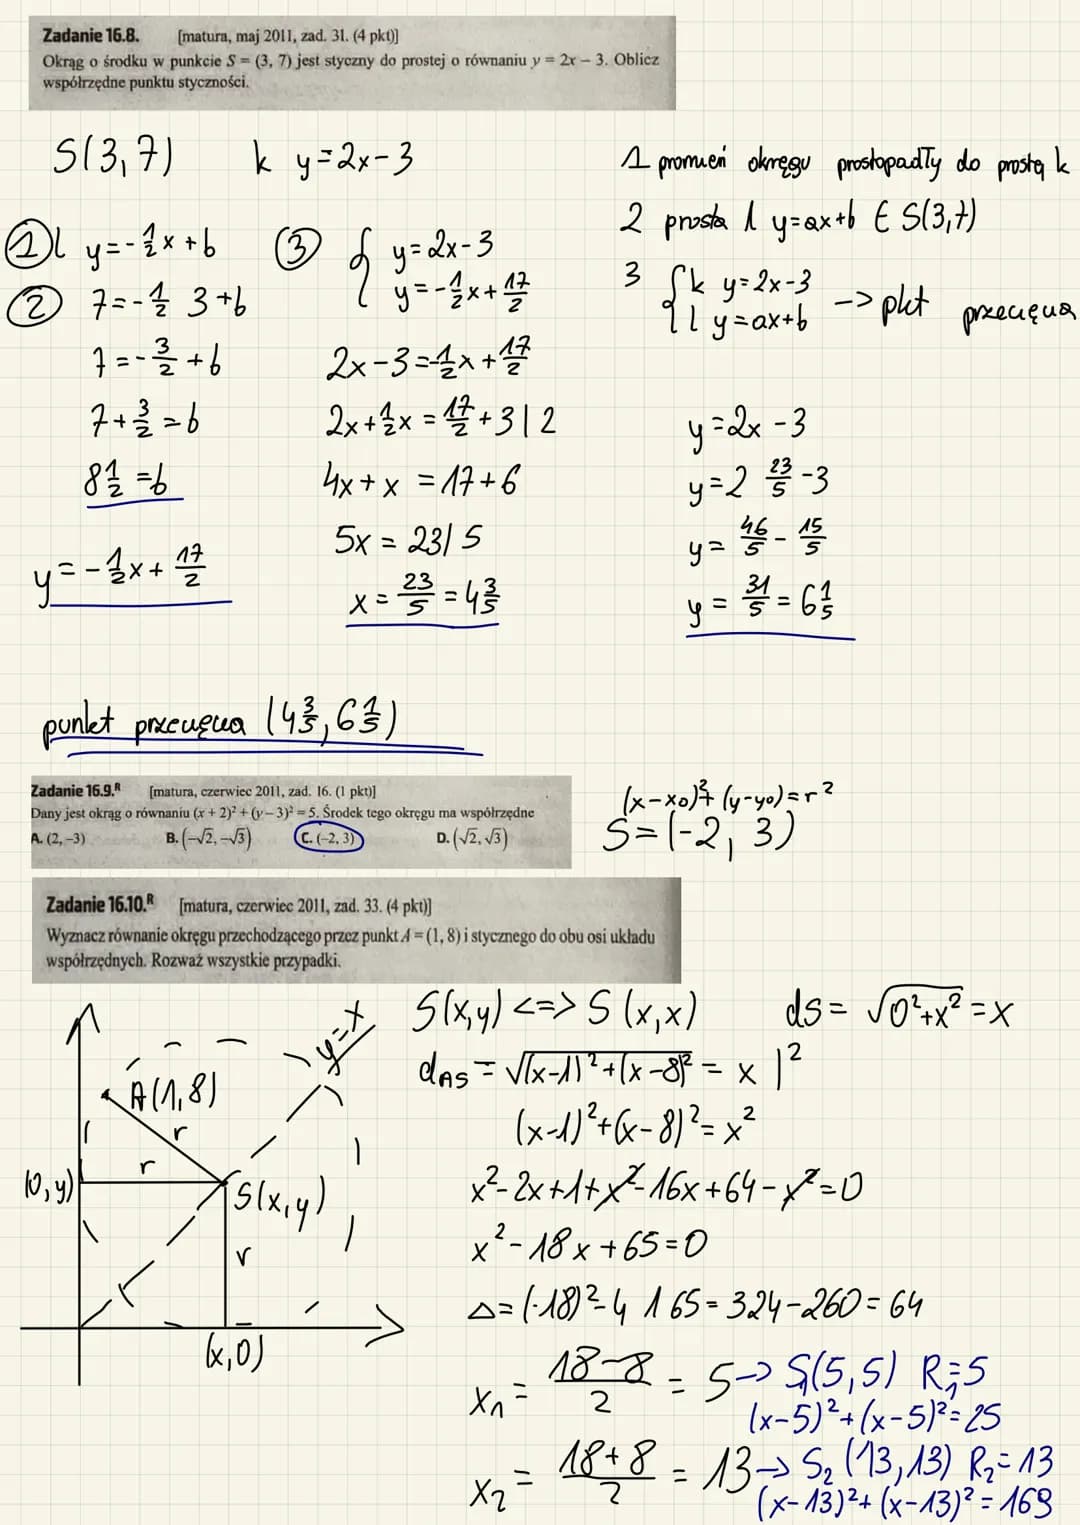 Zadanie 16.8. [matura, maj 2011, zad. 31. (4 pkt)]
Okrąg o środku w punkcie S = (3, 7) jest styczny do prostej o równaniu y = 2x – 3. Oblicz
współrzędne punktu styczności.
S(3,7) k y=2x-3
① l y=-1/2x+b
② 7=-1/2 3+b
7=-3/2+b
7+3/2=b
8 1/2=b
y=-1/2x+17/2
③ { y=2x-3
y=-1/2x+17/2
2x-3=-1/2x+17/2
2x+1/2x=17/2+3 | 2
4x+x=17+6
5x=23 / 5
x=23/5=4 3/5
1 promień okręgu prostopadły do prostą k
2 prosta l y=ax+b ∈ S(3,7)
3 { k y=2x-3
l y=ax+b -> pkt przecięcia
y=2x-3
y=2 23/5-3
y=46/5-15/5
y=31/5=6 1/5
punkt przecięcia (4 3/5, 6 1/5)
Zadanie 16.9.R [matura, czerwiec 2011, zad. 16. (1 pkt)]
Dany jest okrąg o równaniu (x + 2)² + (y – 3)² = 5. Środek tego okręgu ma współrzędne
A. (2, –3) B. (–√2, –√3) C. (–2, 3) D. (√2, √3)
(x-x₀)²+(y-y₀)=r²
S=(-2, 3)
Zadanie 16.10.R [matura, czerwiec 2011, zad. 33. (4 pkt)]
Wyznacz równanie okręgu przechodzącego przez punkt A = (1, 8) i stycznego do obu osi układu
współrzędnych. Rozważ wszystkie przypadki.
y=x
A(1,8)
r
r
(0,y)
S(x,y)
r
(x,0)
S(x,y) <=> S(x,x) ds=√(0²+x²)=x
dAS=√((x-1)²+(x-8)²)=x |²
(x-1)²+(x-8)²=x²
x²-2x+1+x²-16x+64-x²=0
x²-18x+65=0
Δ=(-18)²-4 1 65=324-260=64
x₁=(18-8)/2=5->S₁(5,5) R₁=5
(x-5)²+(x-5)²=25
x₂=(18+8)/2=13->S₂(13,13) R₂=13
(x-13)²+(x-13)²=169